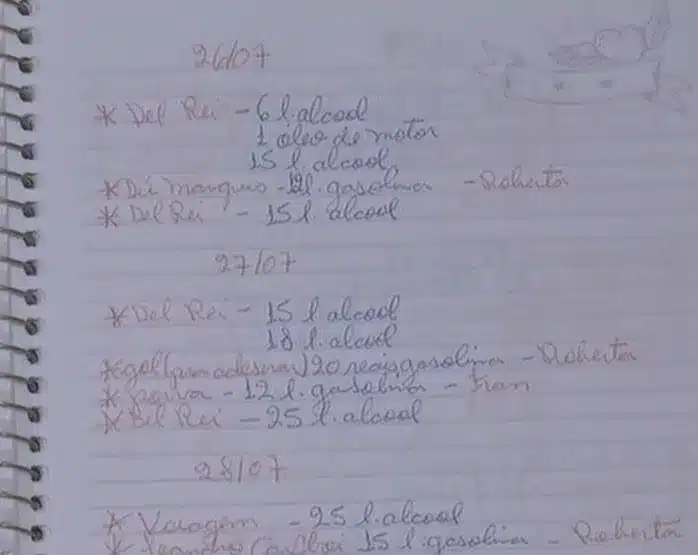 26/07
* Del Rei - 6 l. alcool
1 óleo de motor
15 l. alcool
* Dú marques - 12 l. gasolina - Roberta
* Del Rei - 15 l. alcool
27/07
* Del Rei - 15 l alcool
18 l. alcool
* gol ( ) 20 reais gasolina - Roberta
* parva - 12 l. gasolina - Fran
* Del Rei - 25 l. alcool
28/07
* Varagem - 25 l. alcool
* 15 l. gasolina - Roberta